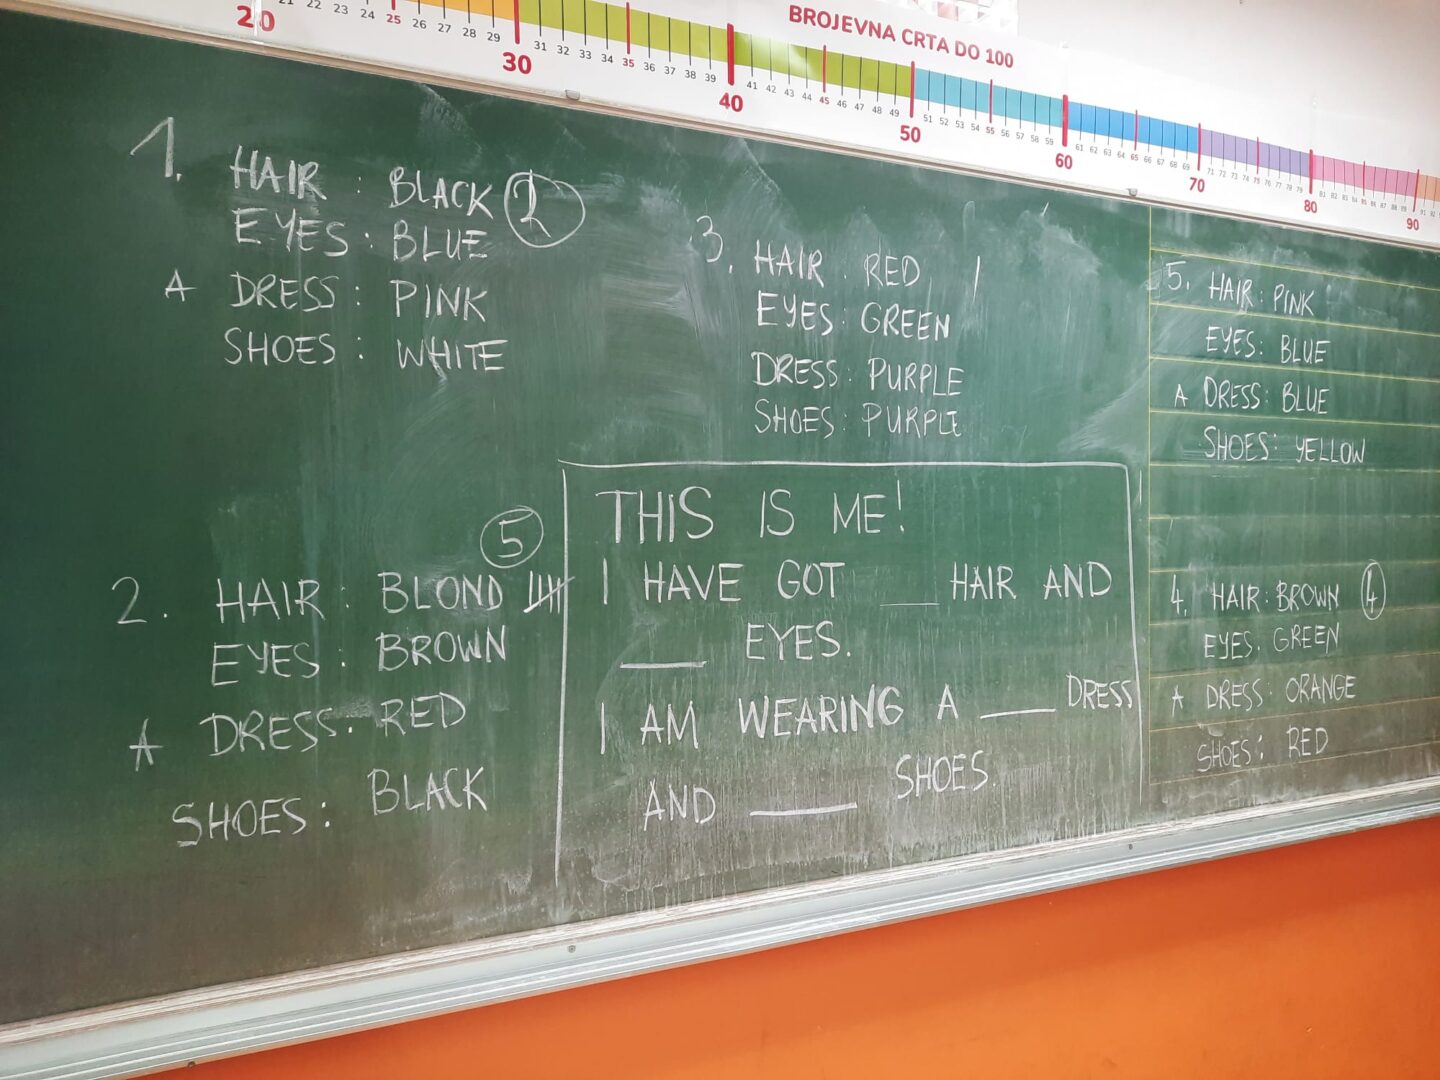 BROJEVNA CRTA DO 100
20 21 22 23 24 25 26 27 28 29 30 31 32 33 34 35 36 37 38 39 40 41 42 43 44 45 46 47 48 49 50 51 52 53 54 55 56 57 58 59 60 61 62 63 64 65 66 67 68 69 70 71 72 73 74 75 76 77 78 79 80 81 82 83 84 85 86 87 88 89 90 91 92
1. HAIR : BLACK
EYES : BLUE
A DRESS : PINK
SHOES : WHITE
3. HAIR : RED
EYES : GREEN
DRESS : PURPLE
SHOES : PURPLE
5. HAIR : PINK
EYES : BLUE
A DRESS : BLUE
SHOES : YELLOW
2. HAIR : BLOND 5
EYES : BROWN
A DRESS : RED
SHOES : BLACK
THIS IS ME!
I HAVE GOT ___ HAIR AND
___ EYES.
I AM WEARING A ___ DRESS
AND ___ SHOES.
4. HAIR : BROWN 4
EYES. GREEN
A DRESS : ORANGE
SHOES : RED